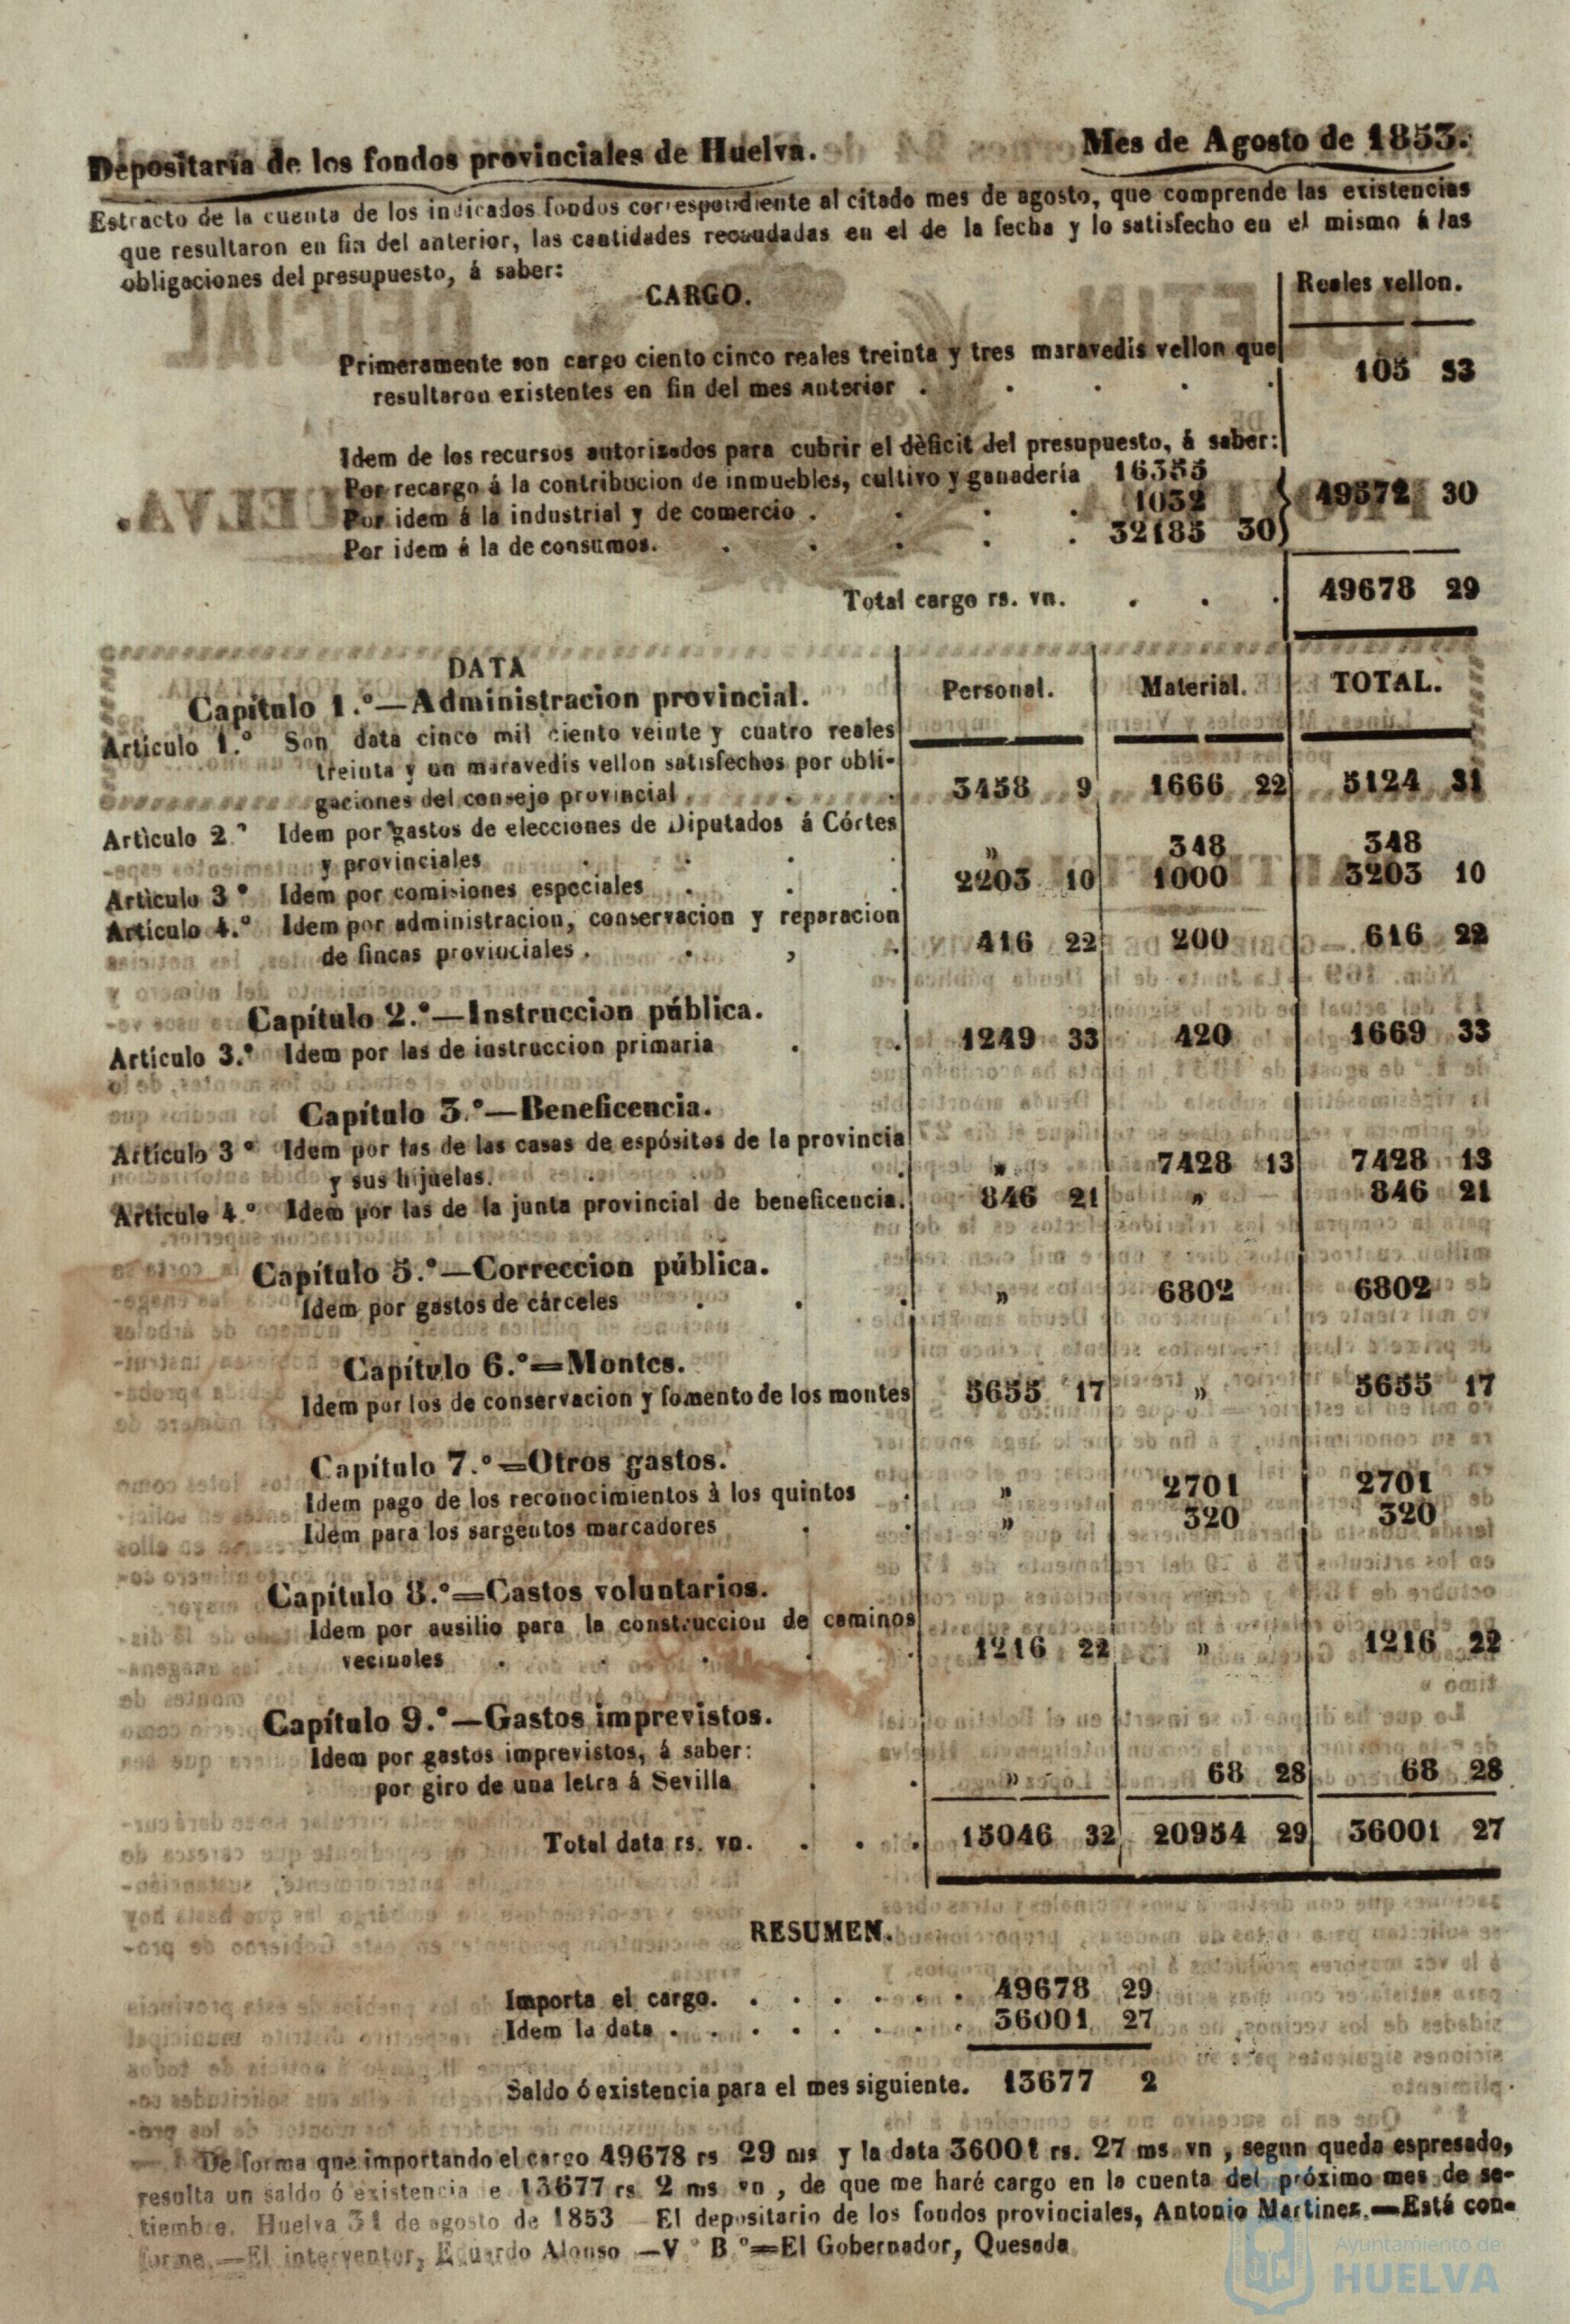 Depositaría de los fondos provinciales de Huelva. Mes de Agosto de 1853.
Estracto de la cuenta de los indicados fondos correspondiente al citado mes de agosto, que comprende las existencias
que resultaron en fin del anterior, las cantidades recaudadas en el de la fecha y lo satisfecho en el mismo á las
obligaciones del presupuesto, á saber:
CARGO. Reales vellon.
Primeramente son cargo ciento cinco reales treinta y tres maravedis vellon que
resultaron existentes en fin del mes anterior . . . . . 105 33
Idem de los recursos autorizados para cubrir el dèficit del presupuesto, á saber:
Por recargo á la contribucion de inmuebles, cultivo y ganadería 16355
Por idem á la industrial y de comercio . . . . 1032 49572 30
Por idem á la de consumos. . . . . . 32185 30
Total cargo rs. vn. . . . 49678 29
DATA
Capítulo 1.º—Administracion provincial. Personal. Material. TOTAL.
Artículo 1.º Son data cinco mil ciento veinte y cuatro reales
treinta y un maravedis vellon satisfechos por obli-
gaciones del consejo provincial . . . 3458 9 1666 22 5124 31
Artìculo 2.º Idem por gastos de elecciones de Diputados á Córtes
y provinciales . . . . » 348 348
Artìculo 3º Idem por comisiones especiales . . . 2203 10 1000 3203 10
Artículo 4.º Idem por administracion, conservacion y reparacion
de fincas provinciales . . , . 416 22 200 616 22
Capítulo 2.º—Instruccion pública.
Artículo 3.º Idem por las de instruccion primaria . . 1249 33 420 1669 33
Capítulo 3.º—Beneficencia.
Artículo 3º Idem por las de las casas de espósitos de la provincia
y sus hijuelas. . . . . » 7428 13 7428 13
Artículo 4.º Idem por las de la junta provincial de beneficencia. 846 21 » 846 21
Capítulo 5.º—Correccion pública.
Idem por gastos de cárceles . . . » 6802 6802
Capítulo 6.º=Montes.
Idem por los de conservacion y fomento de los montes 5655 17 » 5655 17
Capítulo 7.º=Otros gastos.
Idem pago de los reconocimientos à los quintos . » 2701 2701
Idem para los sargentos marcadores . . » 320 320
Capítulo 8.º=Castos voluntarios.
Idem por ausilio para la construccion de caminos
vecinales . . . . . 1216 22 » 1216 22
Capítulo 9.º—Gastos imprevistos.
Idem por gastos imprevistos, á saber:
por giro de una letra á Sevilla . . » 68 28 68 28
Total data rs. vn. . . . 15046 32 20954 29 36001 27
RESUMEN.
Importa el cargo. . . . . . . . 49678 29
Idem la data . . . . . . . . 36001 27
Saldo ó existencia para el mes siguiente. 13677 2
De forma que importando el cargo 49678 rs 29 ms y la data 36001 rs. 27 ms vn , segun queda espresado,
resulta un saldo ó existencia e 13677 rs 2 ms vn , de que me haré cargo en la cuenta del próximo mes de se-
tiembre. Huelva 31 de agosto de 1853 — El depositario de los fondos provinciales, Antonio Martinez.—Está con-
forme.—El interventor, Eduardo Alonso —V.º B.º=El Gobernador, Quesada
Ayuntamiento de
HUELVA